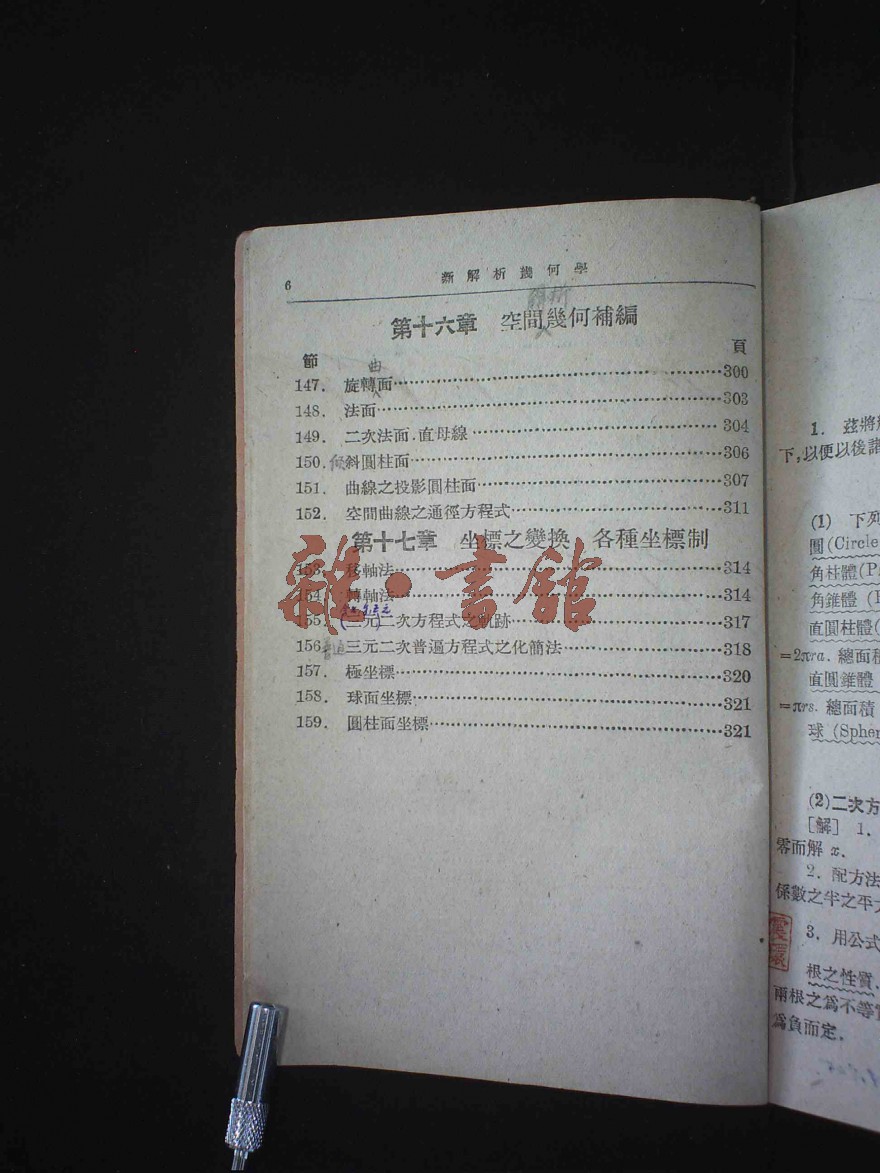 6 新解析幾何學
第十六章 空間幾何補編
節 頁
147. 旋轉面 300
曲
148. 法面 303
149. 二次法面.直母線 304
150. 斜圓柱面 306
151. 曲線之投影圓柱面 307
152. 空間曲線之通徑方程式 311
第十七章 坐標之變換 各種坐標制
153. 移軸法 314
154. 轉軸法 314
155. 三元二次方程式之軌跡 317
156. 三元二次普遍方程式之化簡法 318
157. 極坐標 320
158. 球面坐標 321
159. 圓柱面坐標 321
雜·書館
1. 茲將
下,以便以後諸
(1) 下列
圓(Circle
角柱體(P
角錐體
直圓柱體(
=2πra. 總面積
直圓錐體
=πrs. 總面積
球 (Spher
(2)二次方
[解] 1.
零而解 x.
2. 配方法
係數之半之平
3. 用公式
根之性質.
兩根之爲不等
爲負而定.